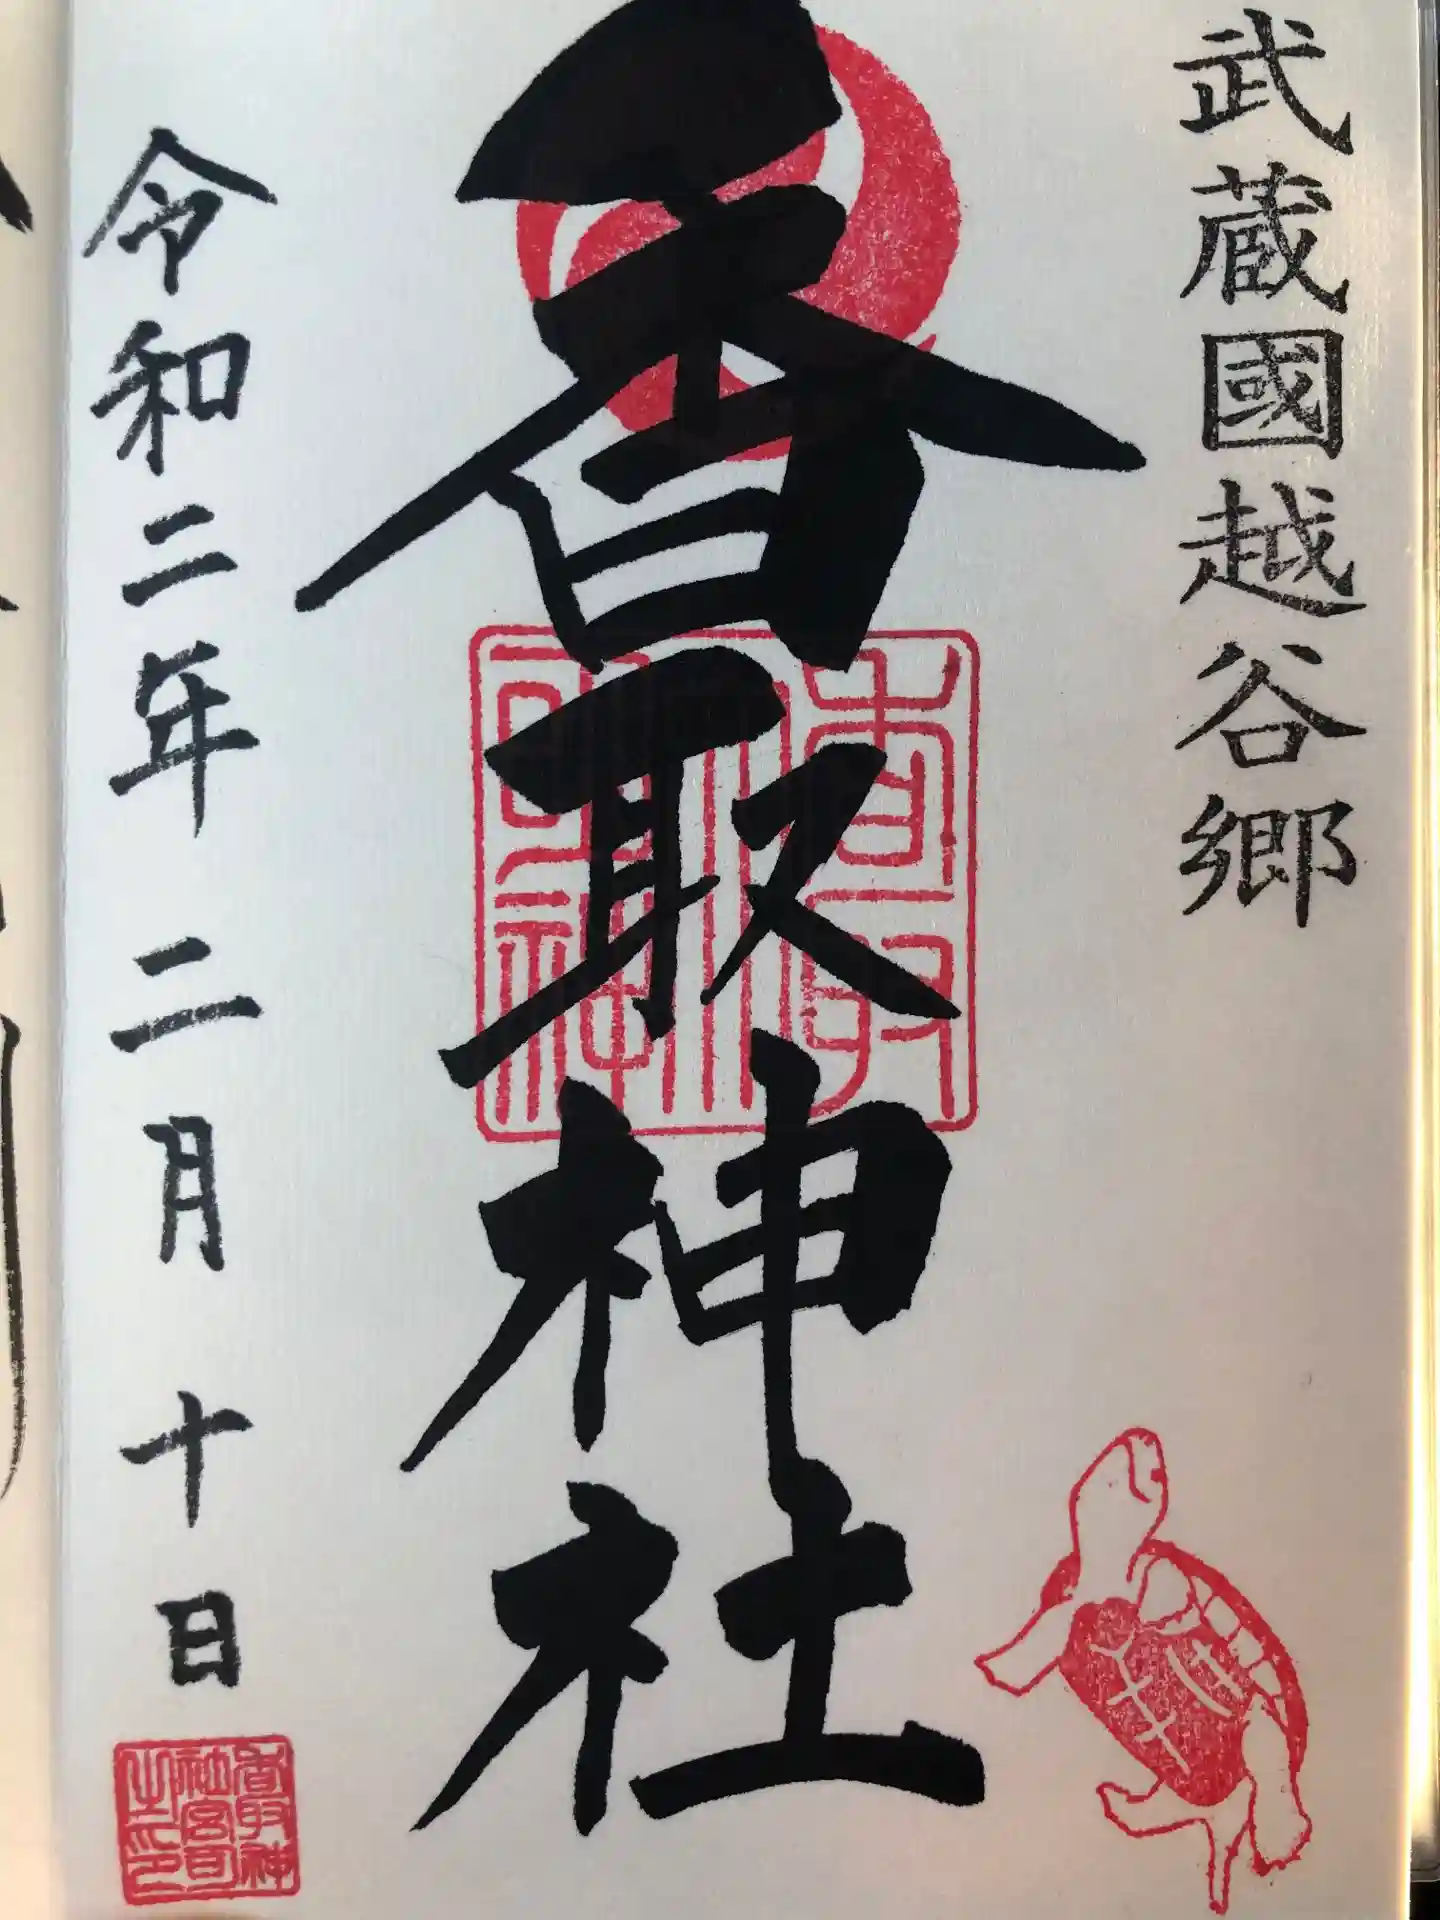 武蔵國越谷郷
香取神社
令和二年二月十日
香取神
社宮司
之印